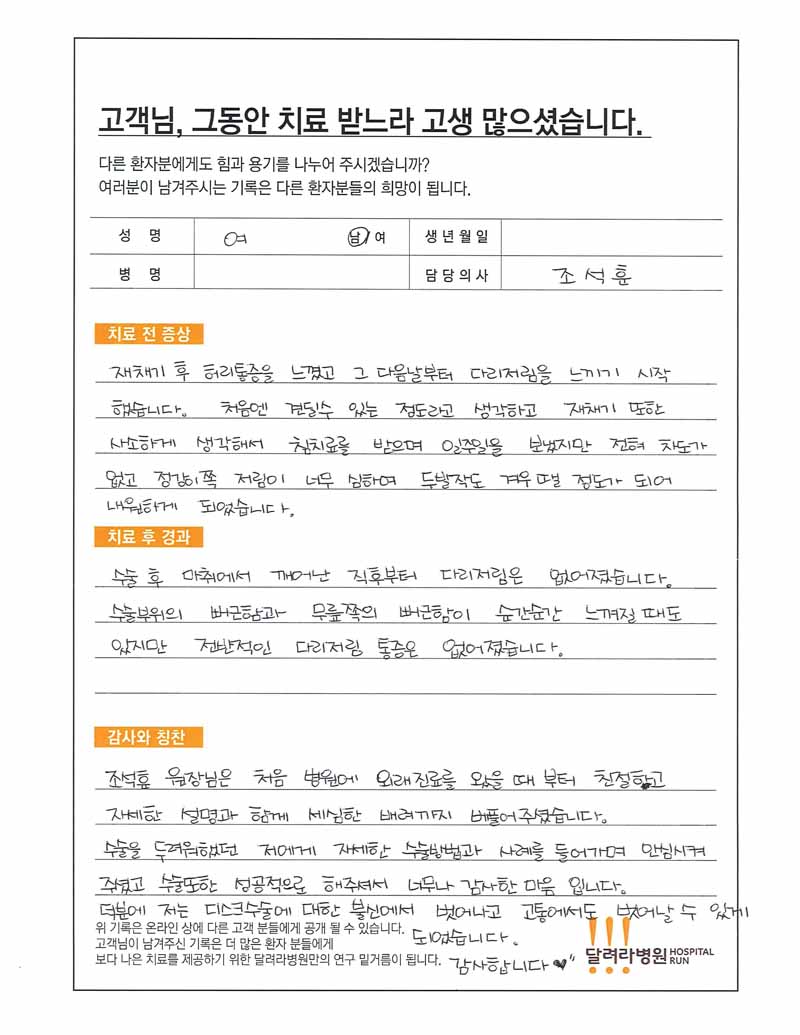 고객님, 그동안 치료 받느라 고생 많으셨습니다.
다른 환자분에게도 힘과 용기를 나누어 주시겠습니까?
여러분이 남겨주시는 기록은 다른 환자분들의 희망이 됩니다.
성 명 여 남/여 생년월일
병 명 담당의사 조석훈
치료 전 증상
재채기 후 허리통증을 느꼈고 그 다음날부터 다리저림을 느끼기 시작
했습니다. 처음엔 견딜수 있는 정도라고 생각하고 재채기 또한
사소하게 생각해서 침치료를 받으며 일주일을 보냈지만 전혀 차도가
없고 정강이쪽 저림이 너무 심하여 두발작도 겨우 뗄 정도가 되어
내원하게 되었습니다.
치료 후 경과
수술 후 마취에서 깨어난 직후부터 다리저림은 없어졌습니다.
수술부위의 뻐근함과 무릎쪽의 뻐근함이 순간순간 느껴질 때도
있지만 전반적인 다리저림 통증은 없어졌습니다.
감사와 칭찬
조석훈 원장님은 처음 병원에 외래진료를 왔을 때 부터 친절하고
자세한 설명과 함께 세심한 배려까지 베풀어주셨습니다.
수술을 두려워했던 저에게 자세한 수술방법과 사례를 들어가며 안심시켜
주셨고 수술또한 성공적으로 해주셔서 너무나 감사한 마음 입니다.
덕분에 저는 디스크수술에 대한 불신에서 벗어나고 고통에서도 벗어날 수 있게
되었습니다.
감사합니다♥"
위 기록은 온라인 상에 다른 고객 분들에게 공개 될 수 있습니다.
고객님이 남겨주신 기록은 더 많은 환자 분들에게
보다 나은 치료를 제공하기 위한 달려라병원만의 연구 밑거름이 됩니다.
달려라병원 HOSPITAL RUN